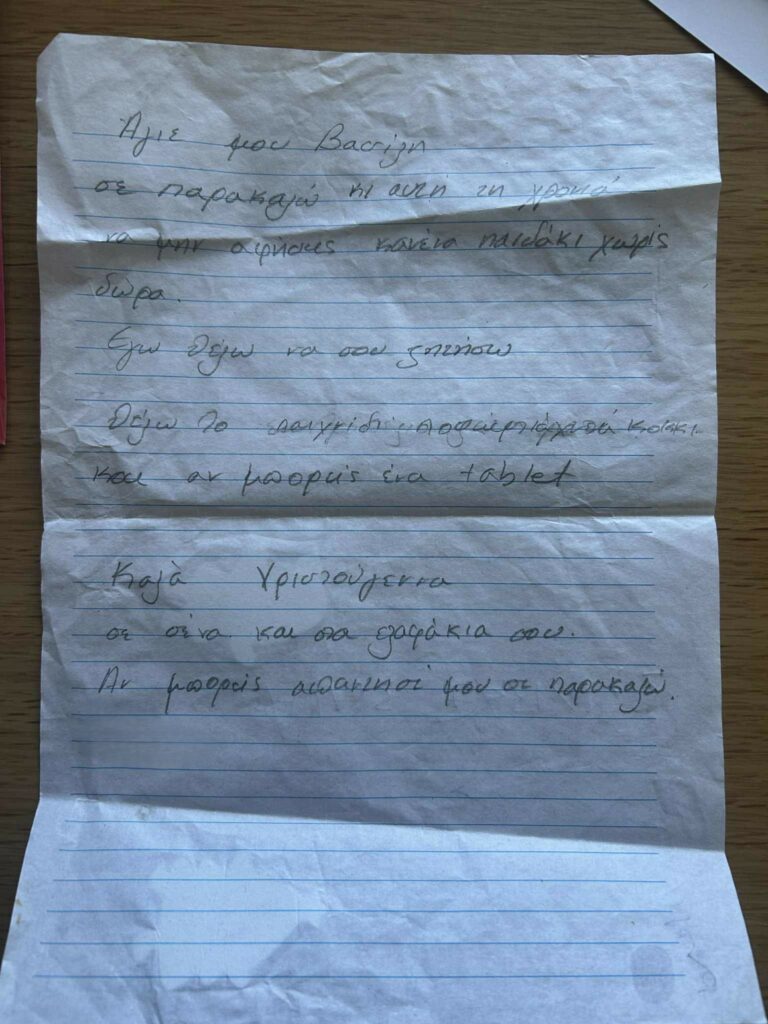 Άγιε μου Βασίλη
σε παρακαλώ κι αυτή τη χρονιά
να μην αφήσεις κανένα παιδάκι χωρίς
δώρα.
Εγώ θέλω να σου ζητήσω
Θέλω το παιχνίδι
και αν μπορείς ένα tablet
Καλά Χριστούγεννα
σε σένα και στα ελαφάκια σου.
Αν μπορείς απάντησέ μου σε παρακαλώ.